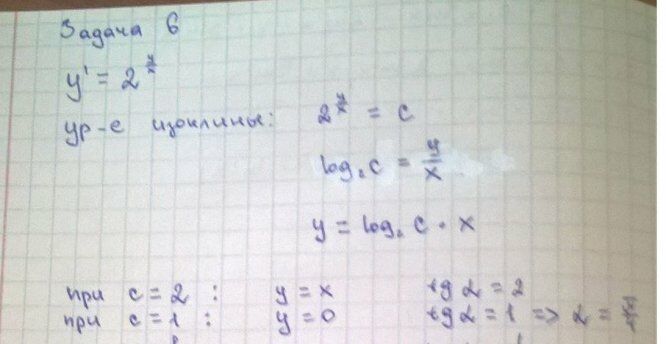 Задача 6
y' = 2^(y/x)
ур-е изоклины: 2^(y/x) = c
log₂ c = y/x
y = log₂ c · x
при c = 2 : y = x tg α = 2
при c = 1 : y = 0 tg α = 1 => α =